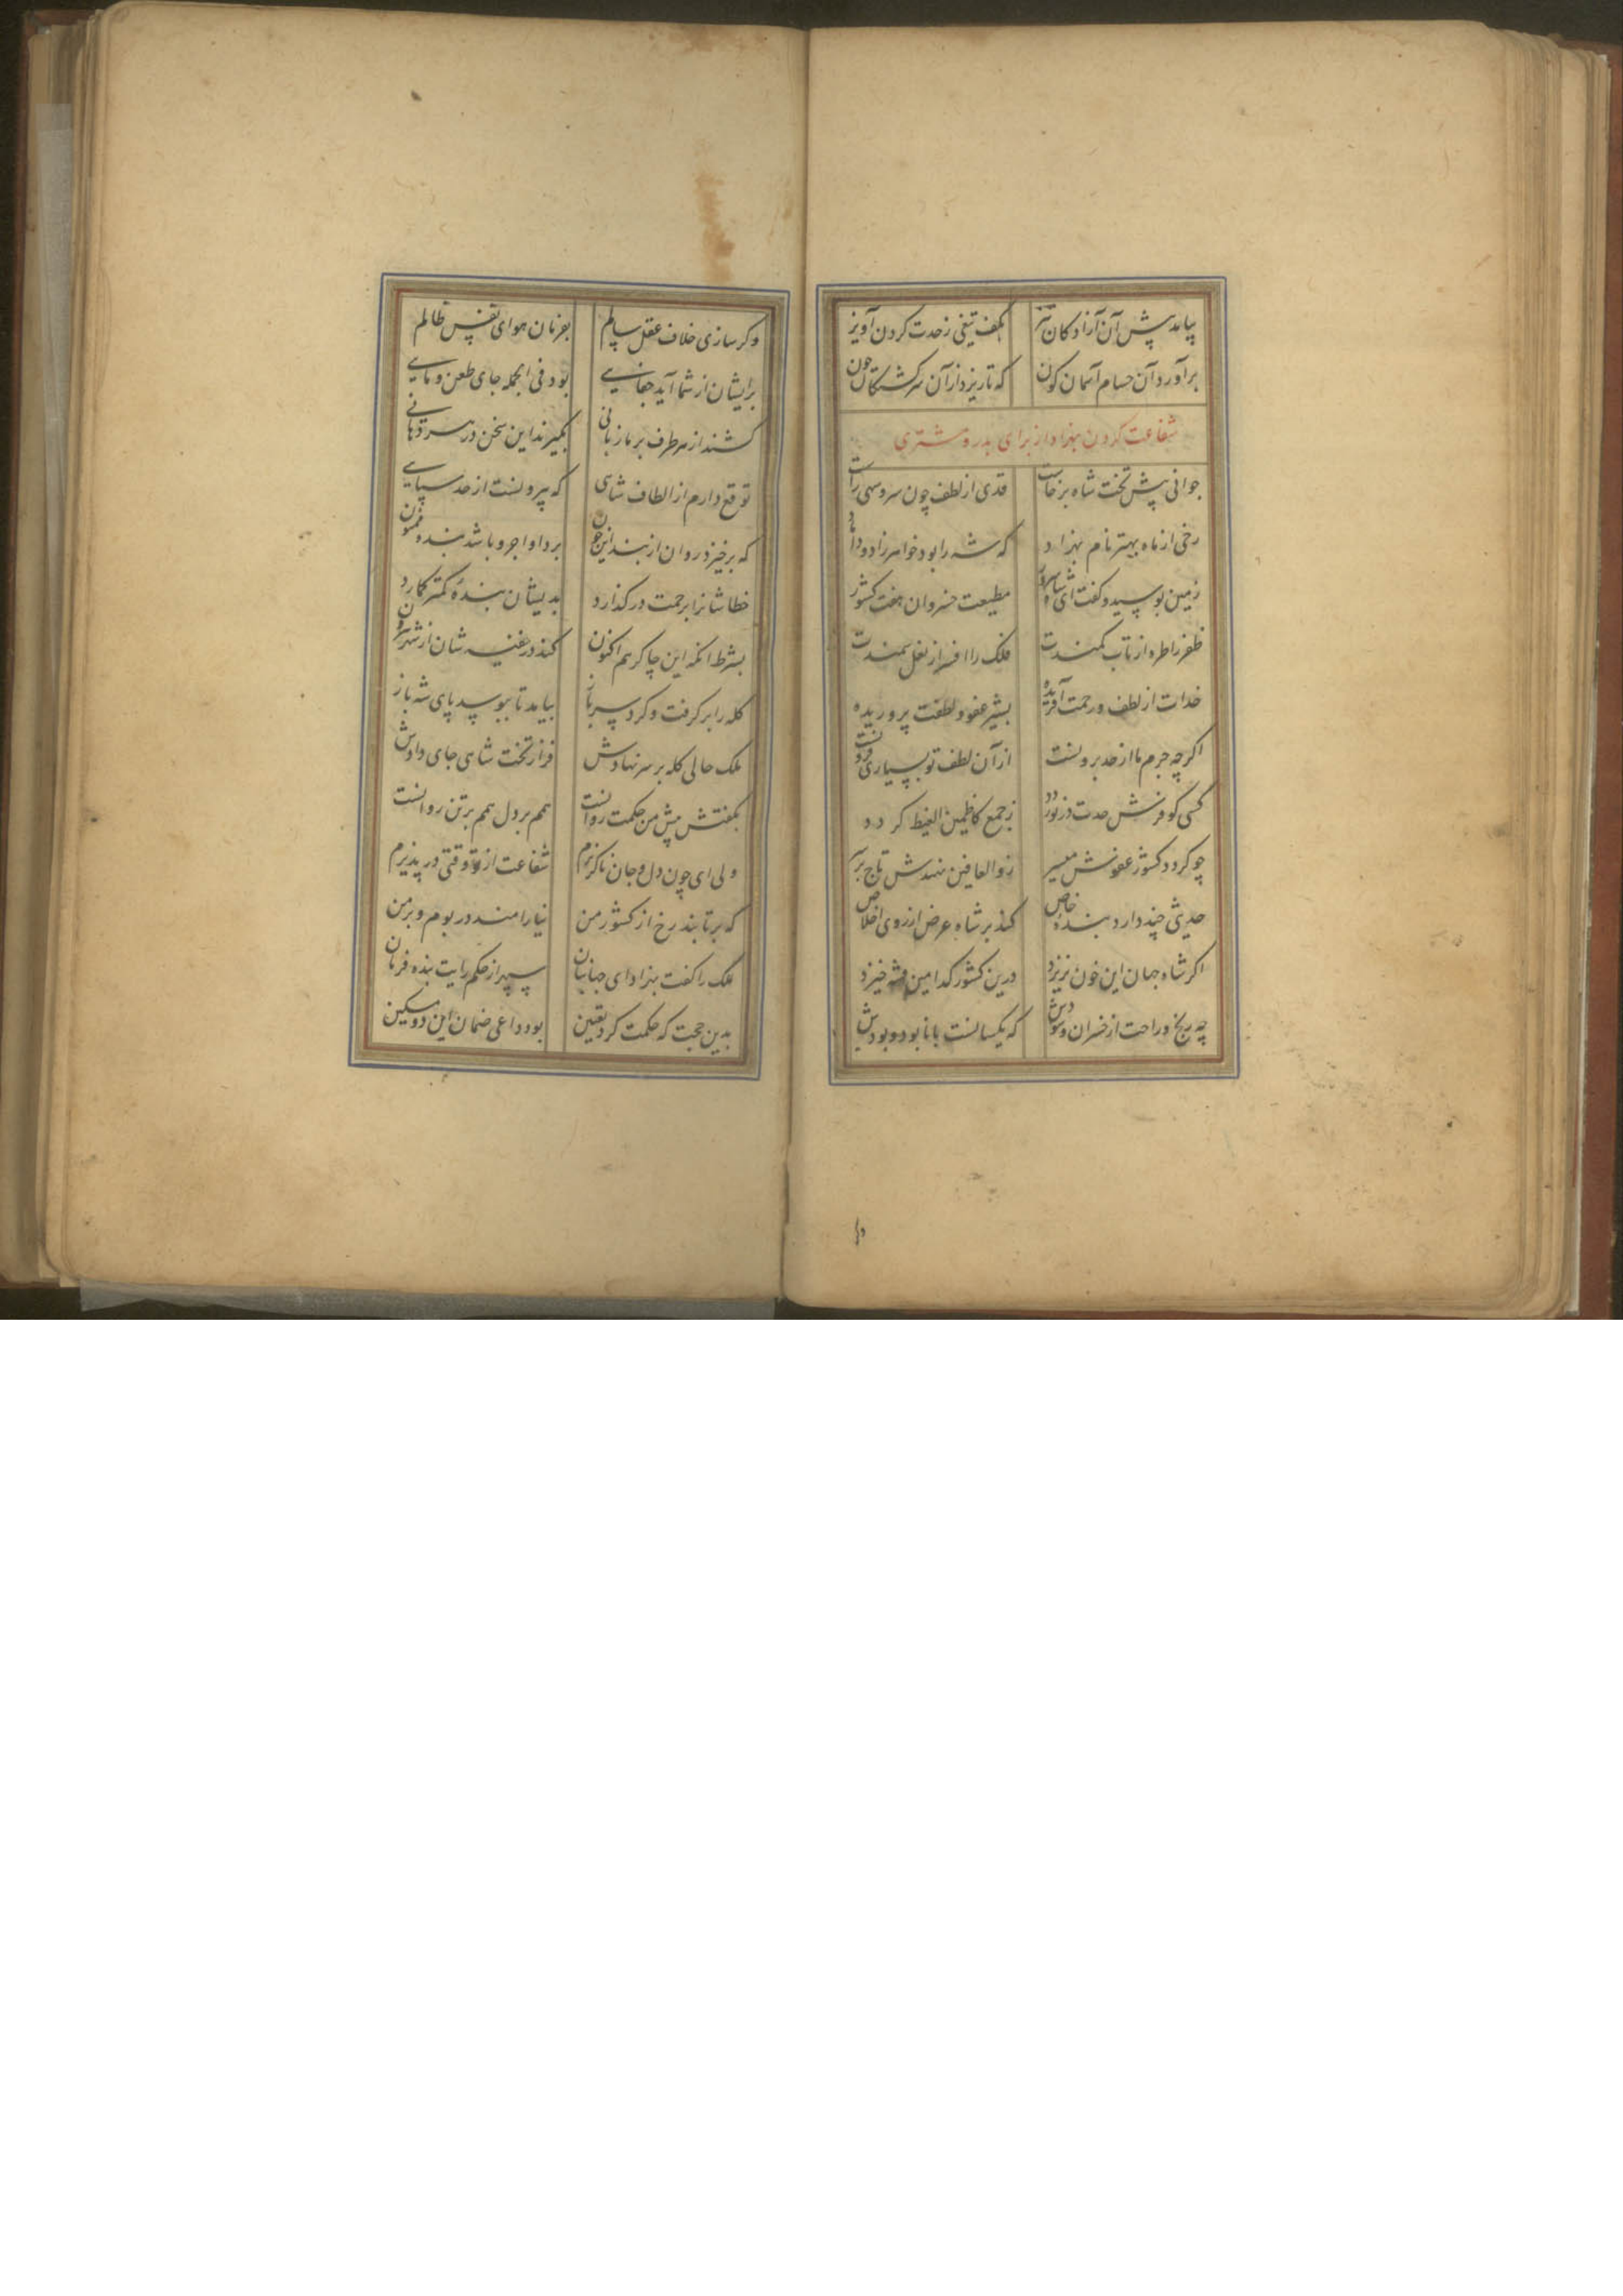 بیامد پیش آن آزادگان تیز بکف تیغی ز حدت گردن آویز
برآورد آن حسام آسمان کون که تا ریزد از آن سرکشتگان خون
شفاعت کردن بهزاد از برای بدر و مشتری
جوانی پیش تخت شاه برخاست قدی از لطف چون سرو سهی راست
رخی از ماه بهتر نام بهزاد که شه را بود خواهرزاد و داماد
زمین بوسید و کفت ای شاه سرور مطیعت خسروان هفت کشور
ظفر را طره از تاب کمندت فلک را افسر از نعل سمندت
خدات از لطف و رحمت آفریده بشیر عفو و لطفت پروریده
اکر چه جرم ما از حد برونست از آن لطف تو بسیاری فزونست
کسی کو فرش حدت در نوردد ز جمع کاظمین الغیظ کردد
چو کردد کشور عفوش میسر ز والعافین نهندش تاج بر سر
حدیثی چند دارد بنده خاص کند بر شاه عرض از روی اخلاص
اکر شاه جهان این خون نریزد درین کشور کدامین فتنه خیزد
چه رنج و راحت از خسران و سودش که یکسانست با نابود و بودش
وکر سازی خلاف عقل سالم بفرمان هوای نفس ظالم
برایشان از شما آید جفایی بود فی الجمله جای طعن و
کشند از هر طرف بر ما زبانی بکیرند این سخن در هر دهانی
توقع دارم از الطاف شاهی که بیرونست از حد سپاهی
که برخیزد روان از بند این خون برد او اجر و باشد بنده ممنون
خطاشانرا برحمت درکذارد بدیشان بنده کمتر کمارد
بشرط آنکه این چاکر هم اکنون کند در غنیه شان از شهر بیرون
کله را برکرفت و کرد سر باز بیامد تا ببوسد پای شه باز
ملک حالی کله بر سر نهادش فراز تخت شاهی جای دادش
بکفتش پیش من حکمت روانست هم بر دل هم بر تن روانست
ولی ای چون دل و جان ناکزیرم شفاعت از تو وقتی در پذیرم
که برتابند رخ از کشور من نیارامند در بوم و بر من
ملک را کفت بهزاد ای جهانبان سپهر از حکم رایت بنده فرمان
بدین حجت که حکمت کرد تعیین بود داعی ضمان این دو مسکین